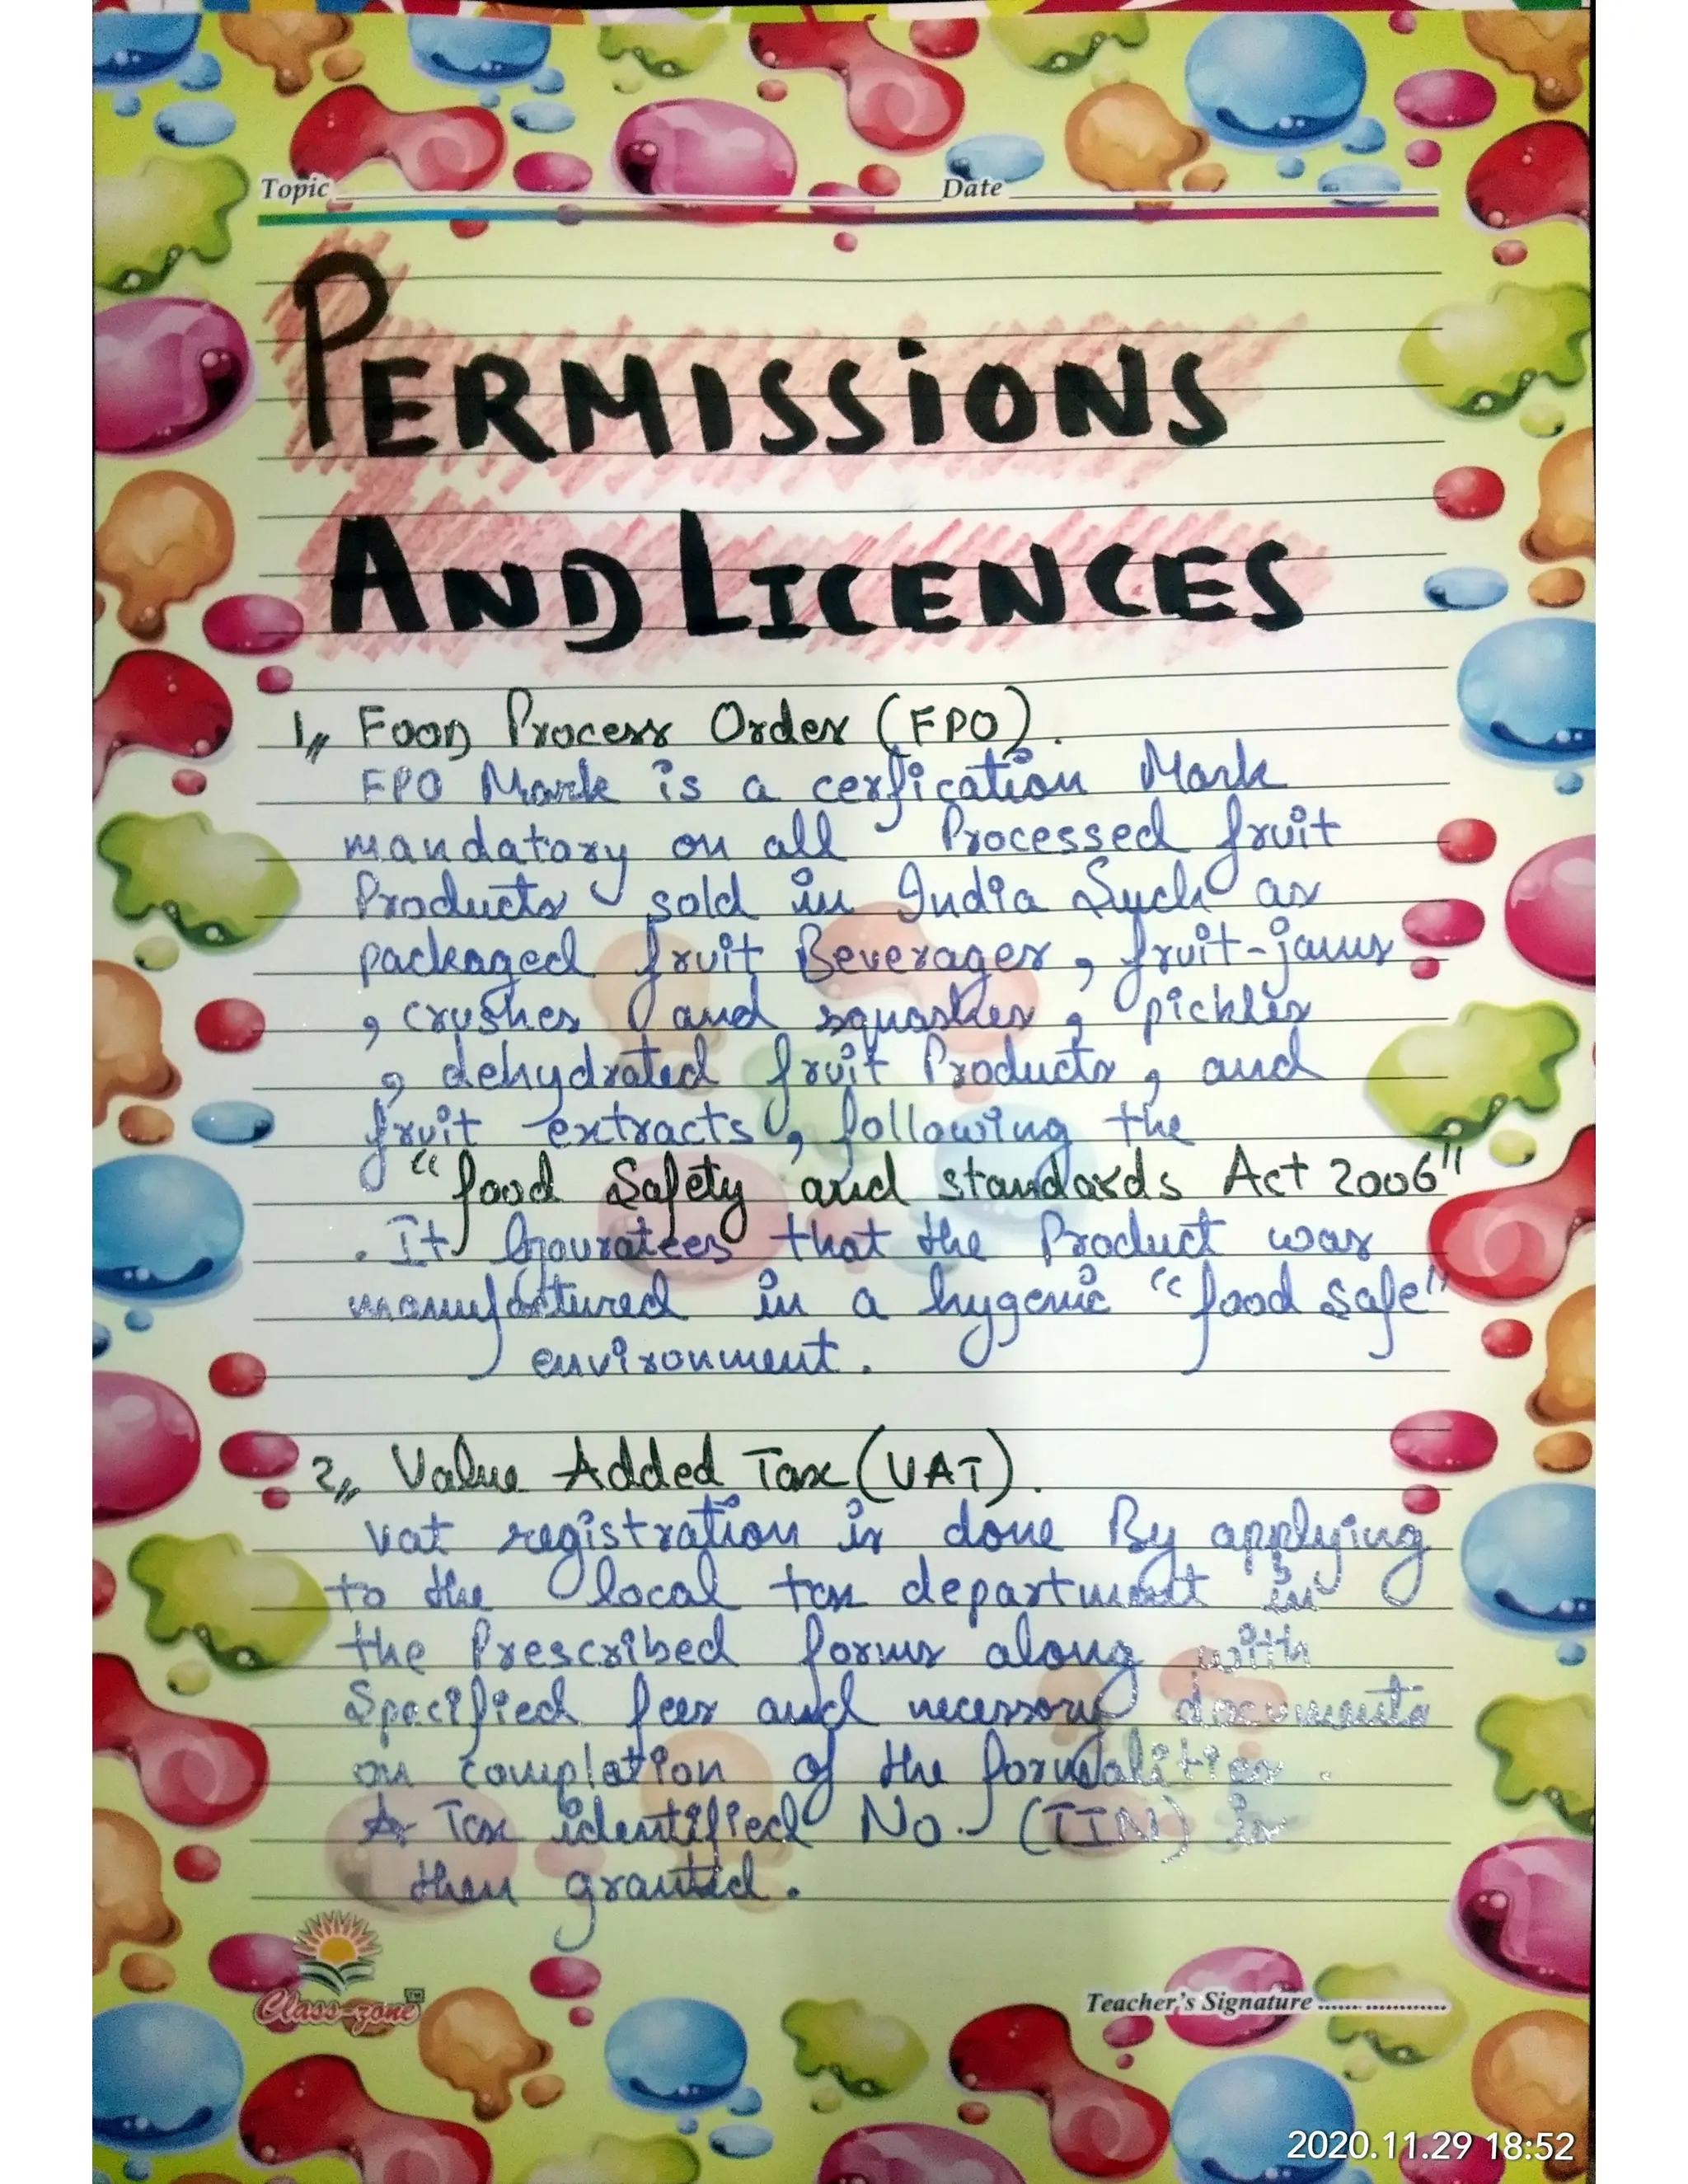 Topic Date
PERMISSIONS
AND LICENCES
1,, Food Process Order (FPO).
FPO Mark is a cerfication Mark
mandatory on all Processed fruit
Products sold in India Such as
packaged fruit Beverages, fruit-jams
, crushes and squashes, pickles
, dehydrated fruit Products, and
fruit extracts, following the
"food Safety and standards Act 2006"
. It Gauratees that the Product was
manufactured in a hygenic "food safe"
environment.
2,, Value Added Tax (VAT).
Vat registration is done By applying
to the local tax department in
the Prescribed forms along with
Specified fees and necessary documents
on completion of the formalities.
A Tax identified No. (TIN) is
then granted.
Class-zone™
Teacher's Signature ...................
2020.11.29 18:52